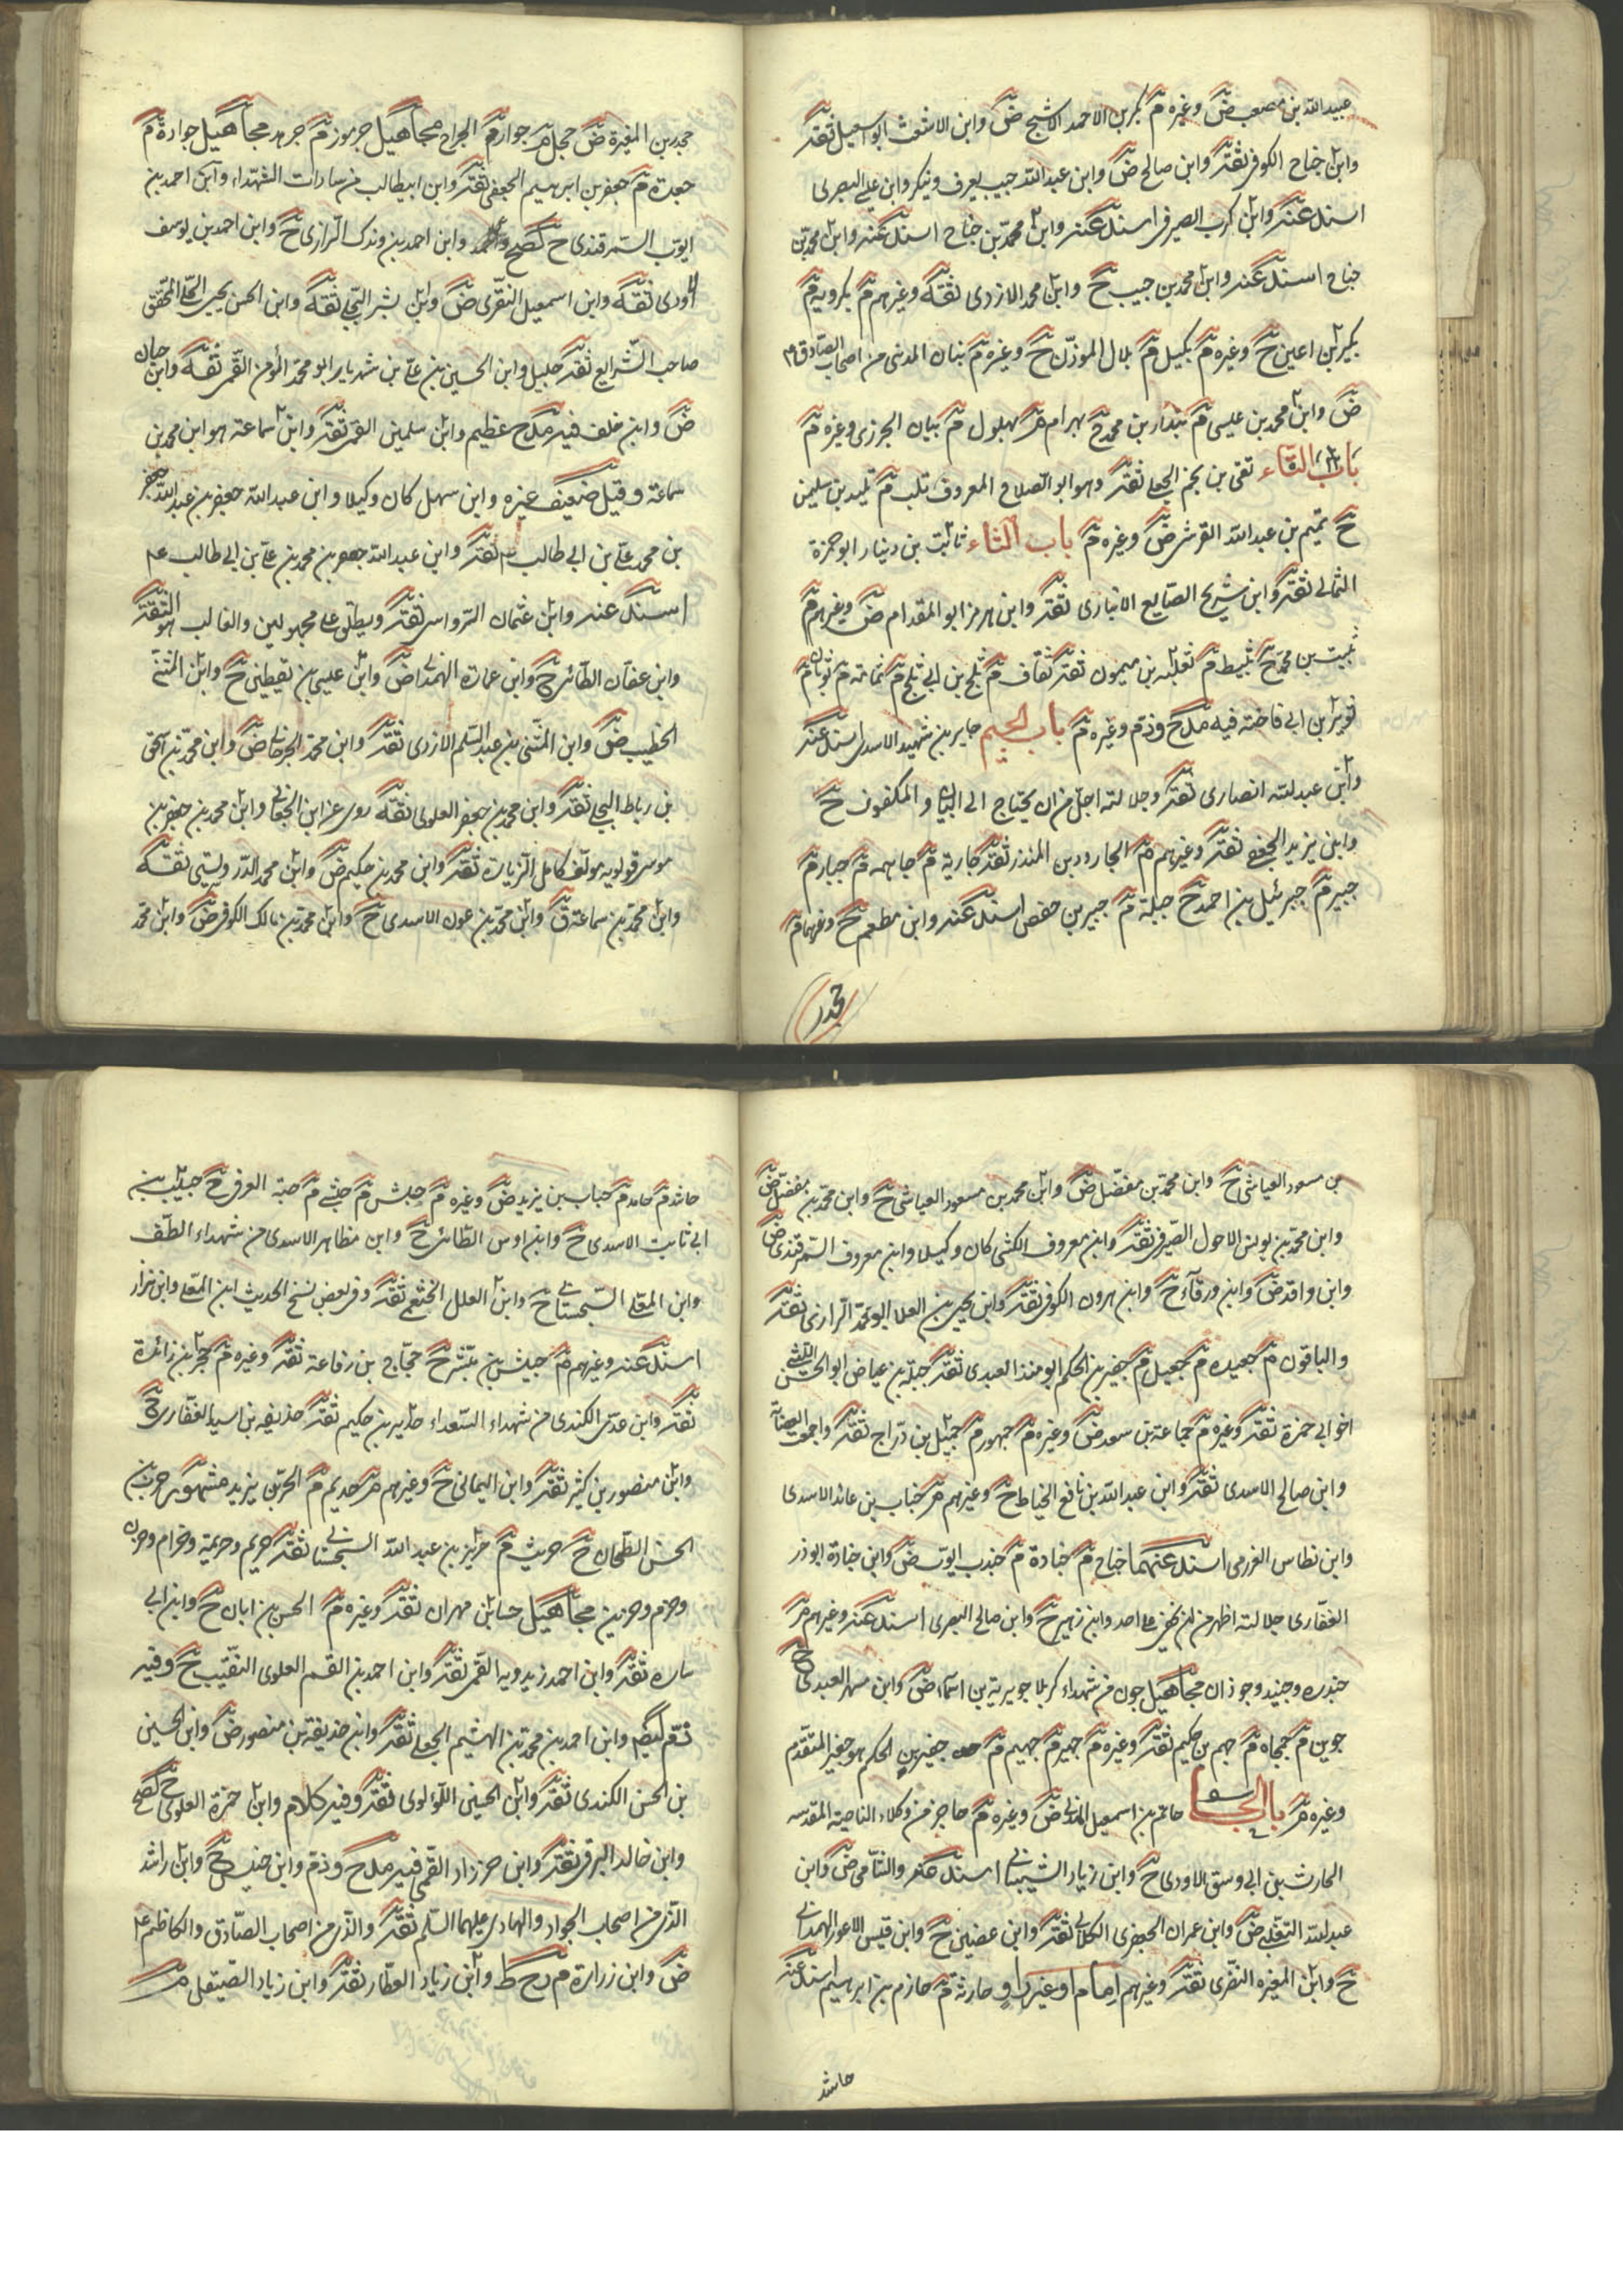 عبيد الله بن مصعب ض وغيره م بكر بن الاحمد الاشج ض وابن الاشعث ابو اسمعيل ثقة
وابن جناح الكوفى ثقة وابن صالح ض وابن عبد الله حبيب يعرف وينكر وابن على البصرى
اسند عنه وابن كرب الصيرفى اسند عنه وابن محمد بن جناح اسند عنه وابن محمد بن
جناح اسند عنه وابن محمد بن حبيب ح وابن محمد الازدى ثقة وغيرهم م بكرويه م
بكير بن اعين ح وغيره م بكيل م بلال الموذن ح وغيره م بنان المدنى من اصحاب الصادق ع
ض وابن محمد بن عيسى م بندار بن محمد ح بهرام م بهلول م بيان الجزرى وغيره م
باب التاء تقى بن نجم الحلبى ثقة وهو ابو الصلاح المعروف تلب م تليد بن سليمن
ح تميم بن عبد الله القرشى ض وغيره م باب الثاء ثابت بن دينار ابو حمزة
الثمالى ثقة وابن شريح الصايغ الانبارى ثقة وابن هرمز ابو المقدام ض وغيرهم م
ثبيت بن محمد ح ثبيط م ثعلبه بن ميمون ثقة ثقاف م ثلج بن ابى ثلج م ثمامة م ثوبان م
ثوير بن ابى فاخته فيه مدح وذم وغيره م باب الجيم جابر بن شهيد الاسدى اسند عنه
وابن عبد الله انصارى ثقة وجلالته اجل من ان يحتاج الى البيان والمكفوف ح
وابن يزيد الجعفى ثقة وغيرهم م الجارود بن المنذر ثقة جارية م جاهمه م جبار م
جبير م جبرئيل بن احمد ح جبلة م جبير بن حفص اسند عنه وابن مطعم ح وغيرهما م
جحدر
جحدر بن المغيرة ض جحل م جوارم الجراح مجاهيل جرموز م جرهد مجاهيل جوادة م
جعدة م جعفر بن ابرهيم الجعفى ثقة وابن ابيطالب من سادات الشهداء وابن احمد بن
ايوب السمرقندى ح كصح وابن احمد بن وندك الرازى ح وابن احمد بن يوسف
الاودى ثقة وابن اسمعيل المنقرى ض وابن بشير البجلى ثقة وابن الحسن يحيى الحلى المحقق
صاحب الشرايع ثقة جليل وابن الحسين بن على بن شهريار ابو محمد المؤمن القمى ثقة وابن حيان
ض وابن خلف فيه مدح عظيم وابن سليمن القمى ثقة وابن سماعة هو ابن محمد بن
سماعة وقيل ضعيف غيره وابن سهل كان وكيلا وابن عبد الله جعفر بن عبد الله جعفر
بن محمد على بن ابى طالب ثقة وابن عبد الله جعفر بن محمد بن على بن ابى طالب ع
اسند عنه وابن عثمان الرواسى ثقة ويطلق على مجهولين والغالب هو الثقة
وابن عفان الطائى ح وابن عمارة الهمدانى ض وابن عيسى بن يقطين ح وابن المثنى
الخطيب ض وابن المثنى بن عبد السلم الازدى ثقة وابن محمد الجرجانى ض وابن محمد بن اسحق
بن رباط البجلى ثقة وابن محمد بن جعفر العلوى ثقة روى عن ابن الجعابى وابن محمد بن جعفر بن
موسى قولويه مؤلف كامل الزيارة ثقة وابن محمد بن حكيم ض وابن محمد الدوريستى ثقة
وابن محمد بن سماعة ق وابن محمد بن عون الاسدى ح وابن محمد بن مالك الكوفى ض وابن محمد
بن مسعود العياشى ح وابن محمد بن مفضل ض وابن محمد بن مسعود العياشى ح وابن محمد بن مفضل ض
وابن محمد بن يونس الاحول الصيرفى ثقة وابن معروف الكشى كان وكيلا وابن معروف السمرقندى ض
وابن واقد ض وابن ورقاء ح وابن هرون الكوفى ثقة وابن يحيى بن العلا ابو محمد الرازى ثقة
والباقون م جعيده م جعيل م جفير بن الحكم ابو منذر العبدى ثقة جلبة بن عياض ابو الحسن الليثى
اخو ابى حمزة ثقة وغيره م جماعة بن سعد ض وغيره م جمهور م جميل بن دراج ثقة واجمعت العصابة
وابن صالح الاسدى ثقة وابن عبد الله بن نافع الخياط ح وغيرهم م جناب بن عائذ الاسدى
وابن نطاس العزرمى اسند عنهما جناح م جنادة م جندب ايوب ض وابن جنادة ابوذر
الغفارى جلالته اظهر من ان يخفى على احد وابن زهير ح وابن صالح البصرى اسند عنه وغيرهم م
جندره وجنيد وجوذان مجاهيل جون من شهداء كربلا جويرية بن اسماء ض وابن مسهر العبدى ح
جوين م جهجاه م جهم بن حكيم ثقة وغيره م جهير م جهيم م جفير بن الحكم هو جفير المتقدم
وغيره م باب الحاء حاتم بن اسمعيل المدنى ض وغيره م حاجز من وكلاء الناحية المقدسه
الحارث بن ابى وسق الاودى ح وابن زياد الشيبانى اسند عنه والشامى ض وابن
عبد الله التغلبى ض وابن عمران الجعفرى الكلابى ثقة وابن عضين ح وابن قيس الاعور الهمدانى
ح وابن المغيره النصرى ثقة وغيرهم امام او غير راو حارثة م حازم بن ابرهيم اسند عنه
حاشد
حاشد م حامد م حباب بن يزيد ض وغيره م حبش م حبشى م حبة العرنى ح حبيب بن
ابى ثابت الاسدى ح وابن اوس الطائى ح وابن مظاهر الاسدى من شهداء الطف
وابن المعلى السجستانى ح وابن العلل الخثعمى ثقة وفى بعض نسخ الحديث ابن المعلى وابن نزار
اسند عنه وغيرهم م حبيش بن مبشر ح حجاج بن رفاعة ثقة وغيره م حجر بن زائدة
ثقة وابن عدى الكندى من شهداء السعداء حديد بن حكيم ثقة حذيفه بن اسيد الغفارى ح
وابن منصور بن كثير ثقة وابن اليمانى ح وغيرهم م حديم م الحر بن يزيد مشهور حرب بن
الحسن الطحان ح حريث م حريز بن عبد الله السجستانى ثقة حريم وحريمة وحزام وحزن
وحزم وحزين مجاهيل حسان بن مهران ثقة وغيره م الحسن بن ابان ح وابن ابى
ساره ثقة وابن احمد زيدويه القمى ثقة وابن احمد بن القسم العلوى النقيب ح وفيه
ذم وابن احمد بن محمد بن الهشيم العجلى ثقة وابن حذيفة بن منصور ض وابن الحسين
بن الحسن الكندى ثقة وابن الحسين اللؤلوى ثقة وفيه كلام وابن حمزة العلوى ح كصح
وابن خالد البرقى ثقة وابن خرزاد القمى فيه مدح وذم وابن خنيس ح وابن راشد
الذى من اصحاب الجواد والهادى عليهما السلم ثقة والذى من اصحاب الصادق والكاظم ع
ض وابن زرارة م دح ط وابن زياد العطار ثقة وابن زياد الصيقل م